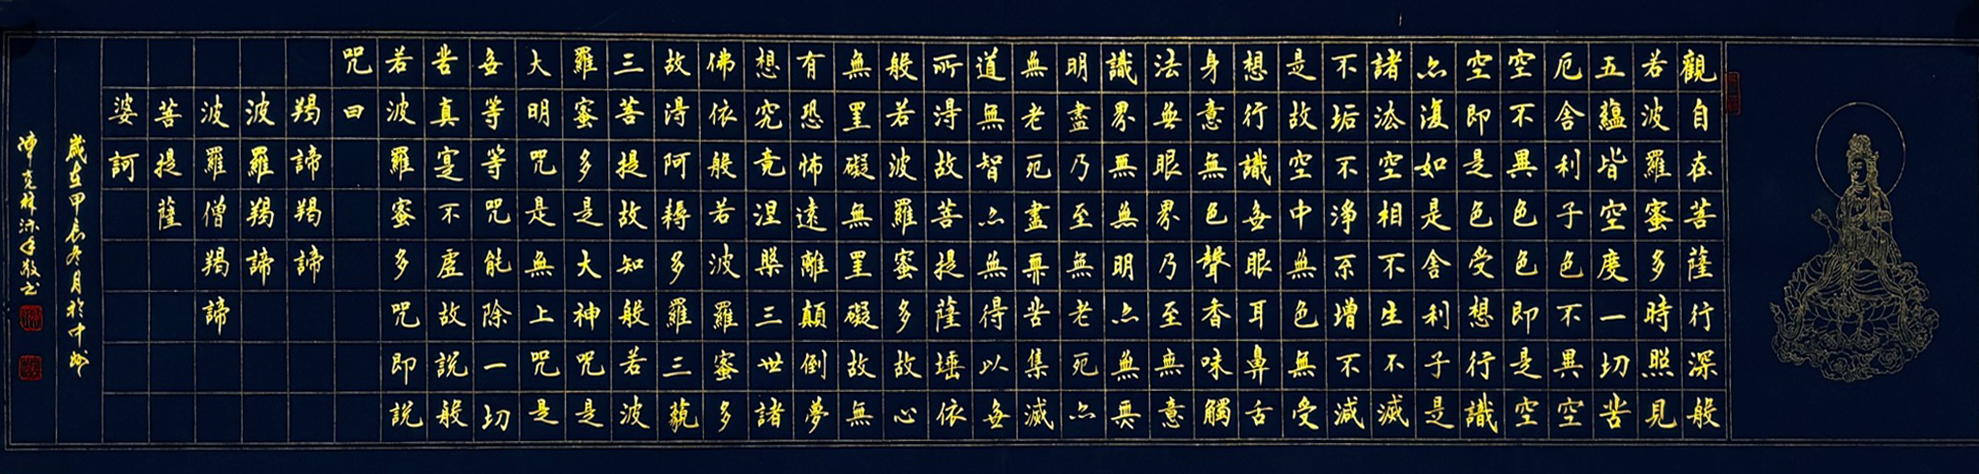 觀自在菩薩行深般
若波羅蜜多時照見
五蘊皆空度一切苦
厄舍利子色不異空
空不異色色即是空
空即是色受想行識
亦復如是舍利子是
諸法空相不生不滅
不垢不淨不增不減
是故空中無色無受
想行識無眼耳鼻舌
身意無色聲香味觸
法無眼界乃至無意
識界無無明亦無無
明盡乃至無老死亦
無老死盡無苦集滅
道無智亦無得以無
所得故菩提薩埵依
般若波羅蜜多故心
無罣礙無罣礙故無
有恐怖遠離顛倒夢
想究竟涅槃三世諸
佛依般若波羅蜜多
故得阿耨多羅三藐
三菩提故知般若波
羅蜜多是大神咒是
大明咒是無上咒是
無等等咒能除一切
苦真寔不虛故說般
若波羅蜜多咒即說
咒曰
羯諦羯諦
波羅羯諦
波羅僧羯諦
菩提薩
婆訶
歲在甲辰冬月於中州
沐手敬書